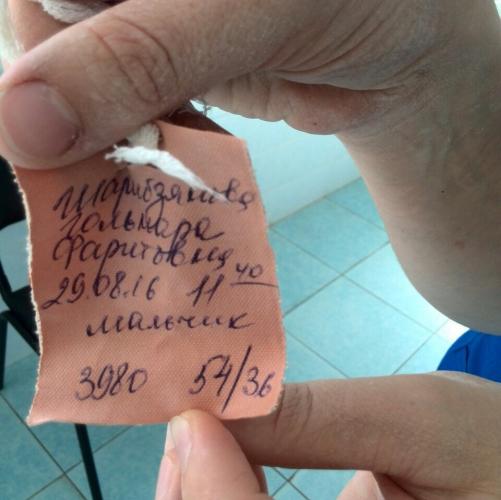 Шарибзянова
Гольнара
Фаритовна
29.08.16 11 40
мальчик
3980 54/36